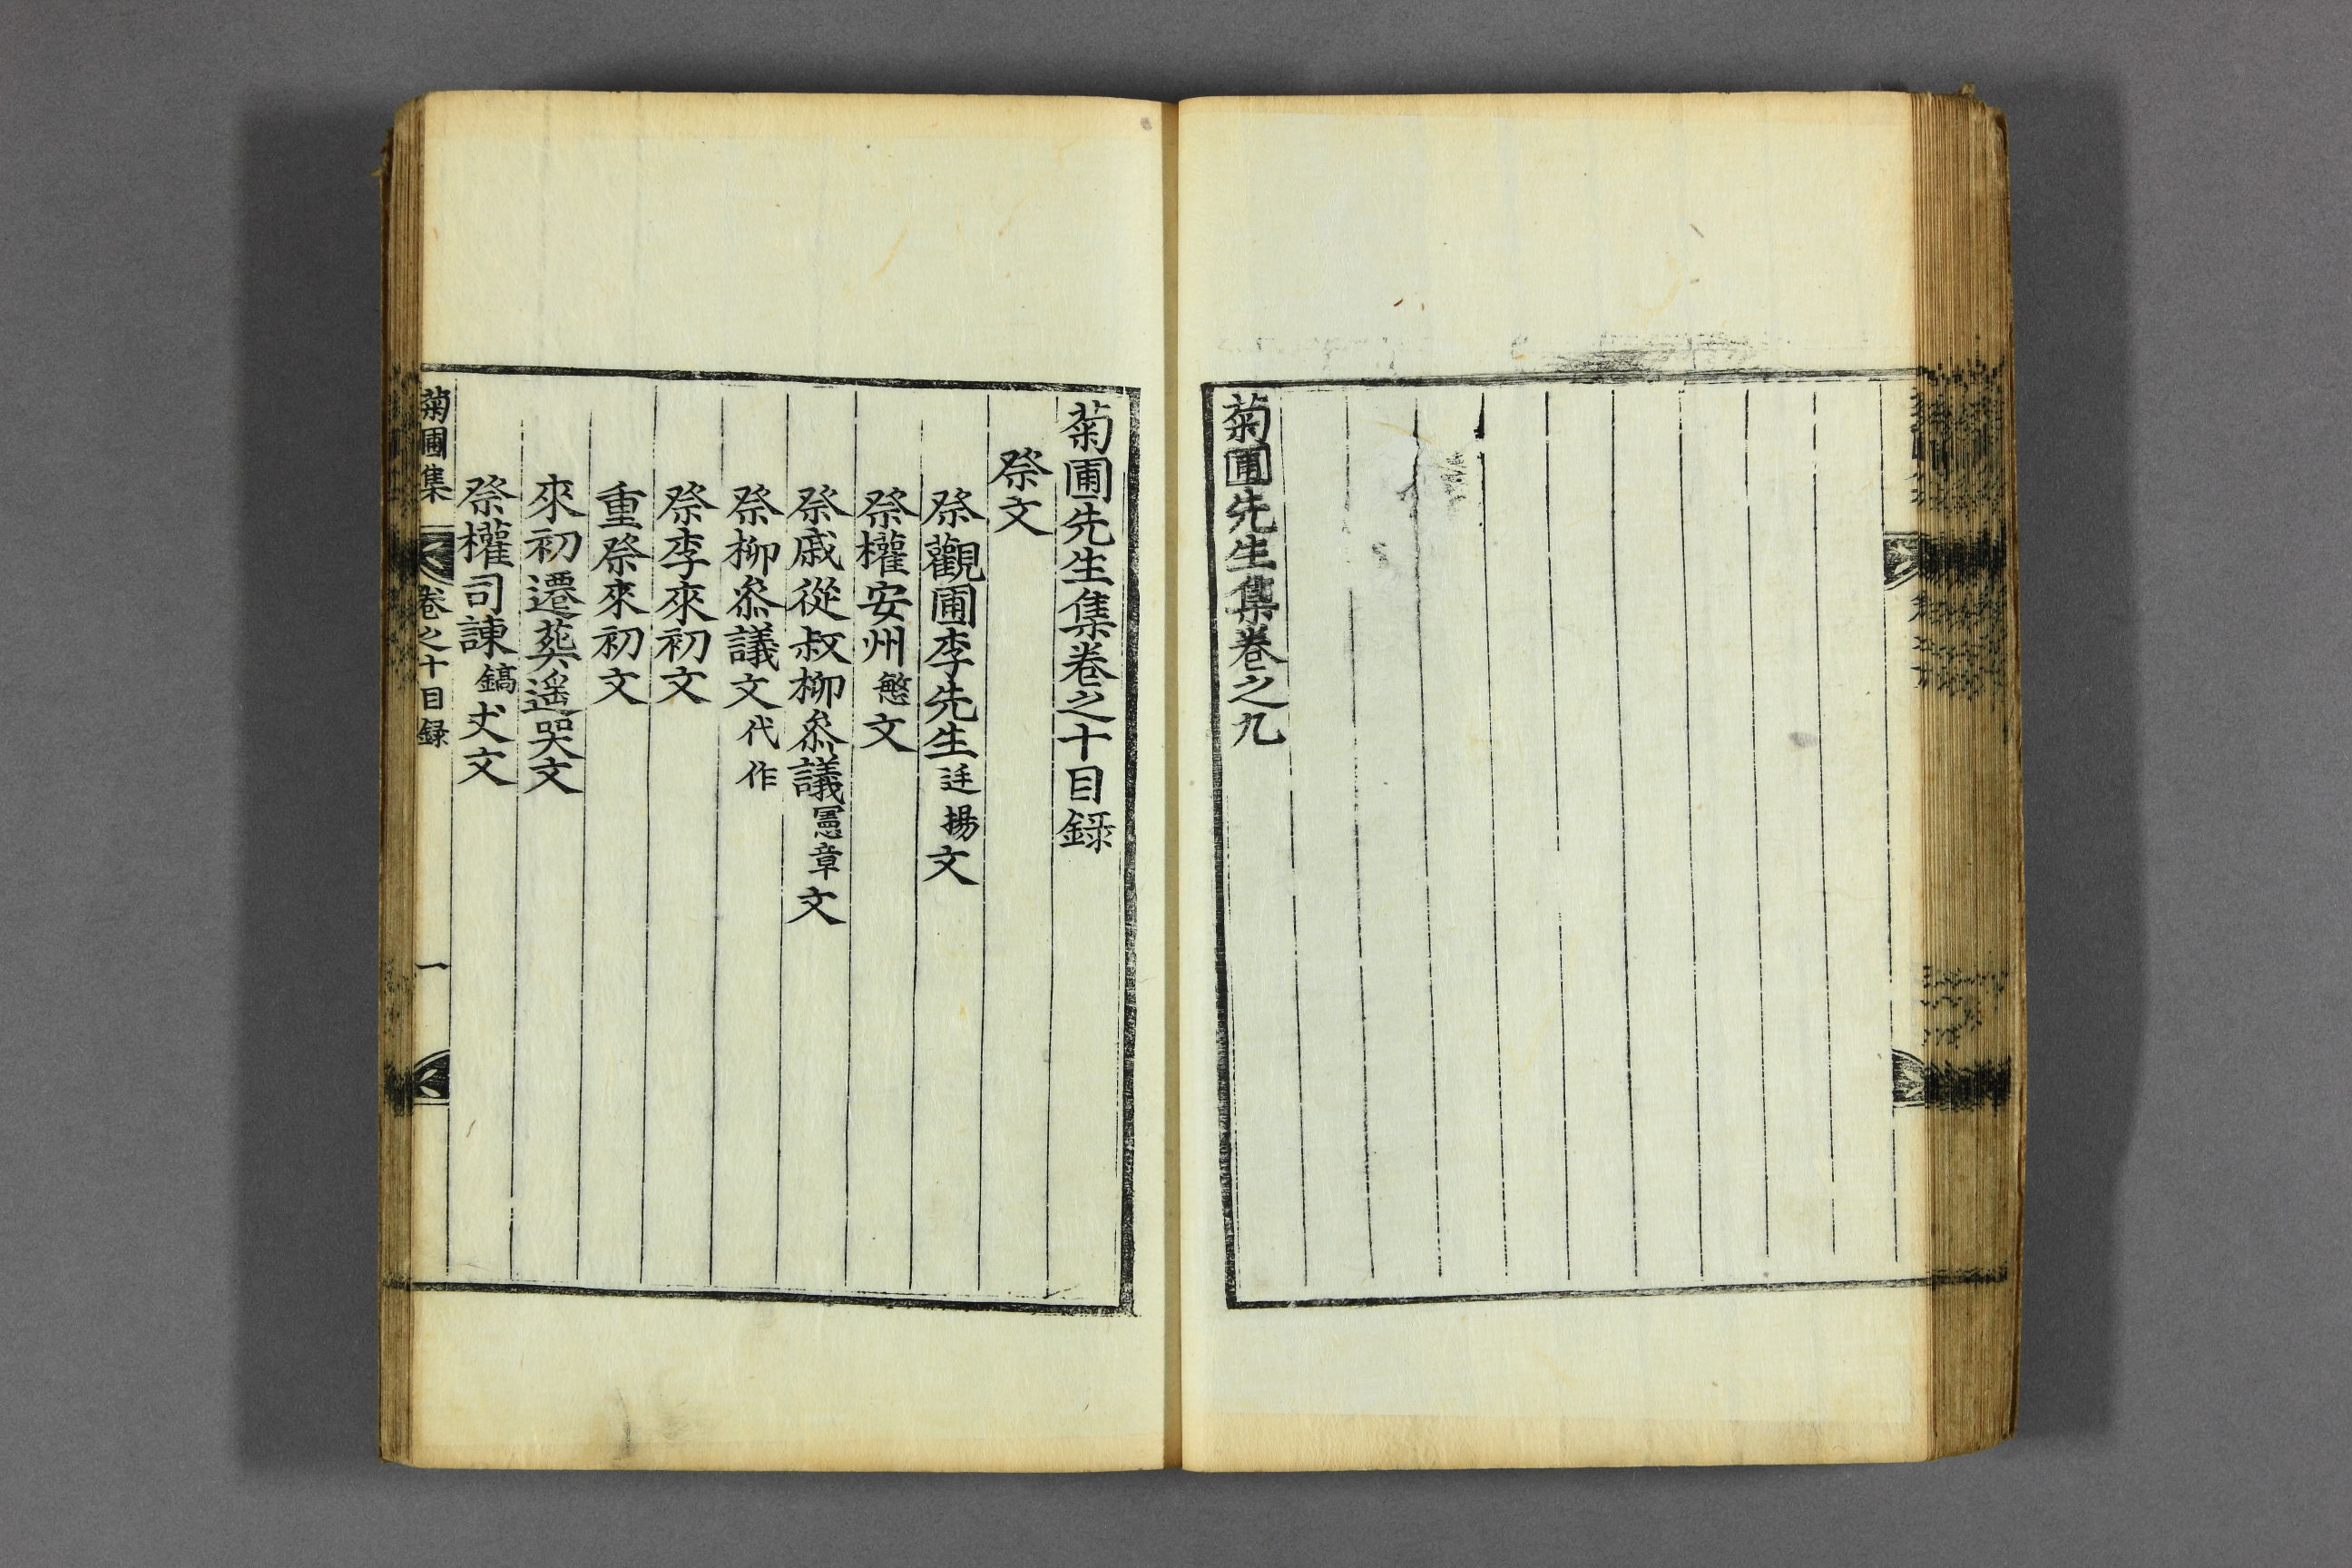 菊圃先生集卷之九
菊圃先生集卷之十目録
祭文
祭觀圃李先生廷揚文
祭權安州慜文
祭戚從叔柳叅議憲章文
祭柳叅議文代作
祭李來初文
重祭來初文
來初遷葬遥哭文
祭權司諫鎬丈文
菊圃集 卷之十目録 一